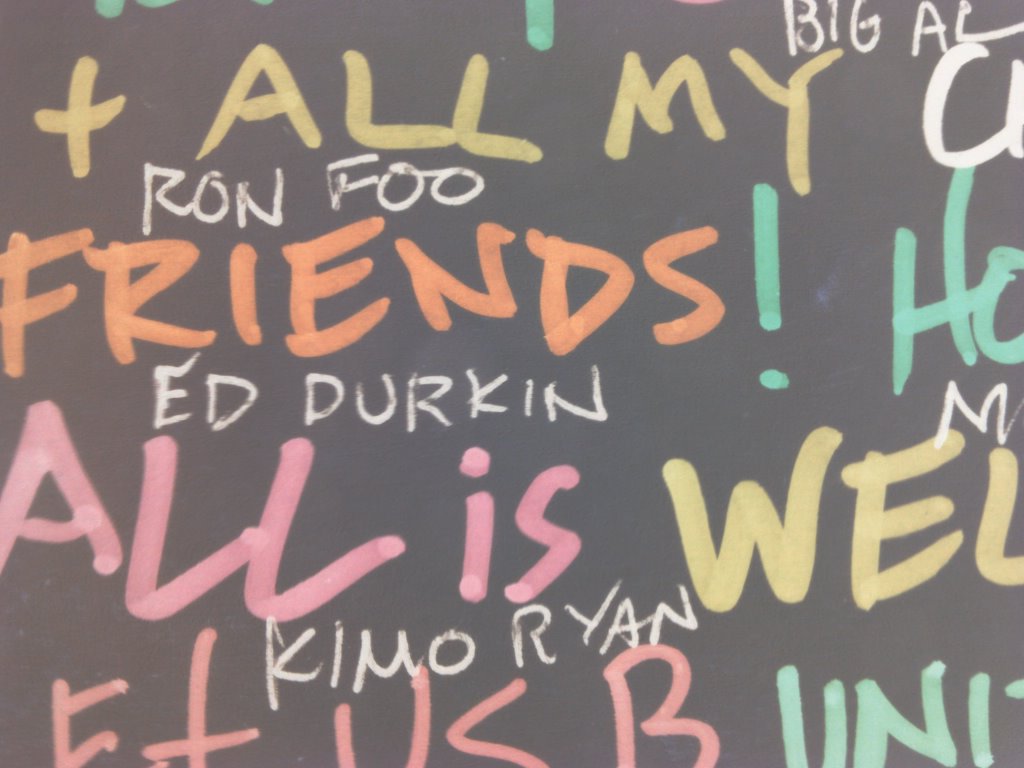 BIG AL
+ ALL MY
RON FOO
FRIENDS!
ED DURKIN
ALL is WEL
KIMO RYAN
Et US B UNI